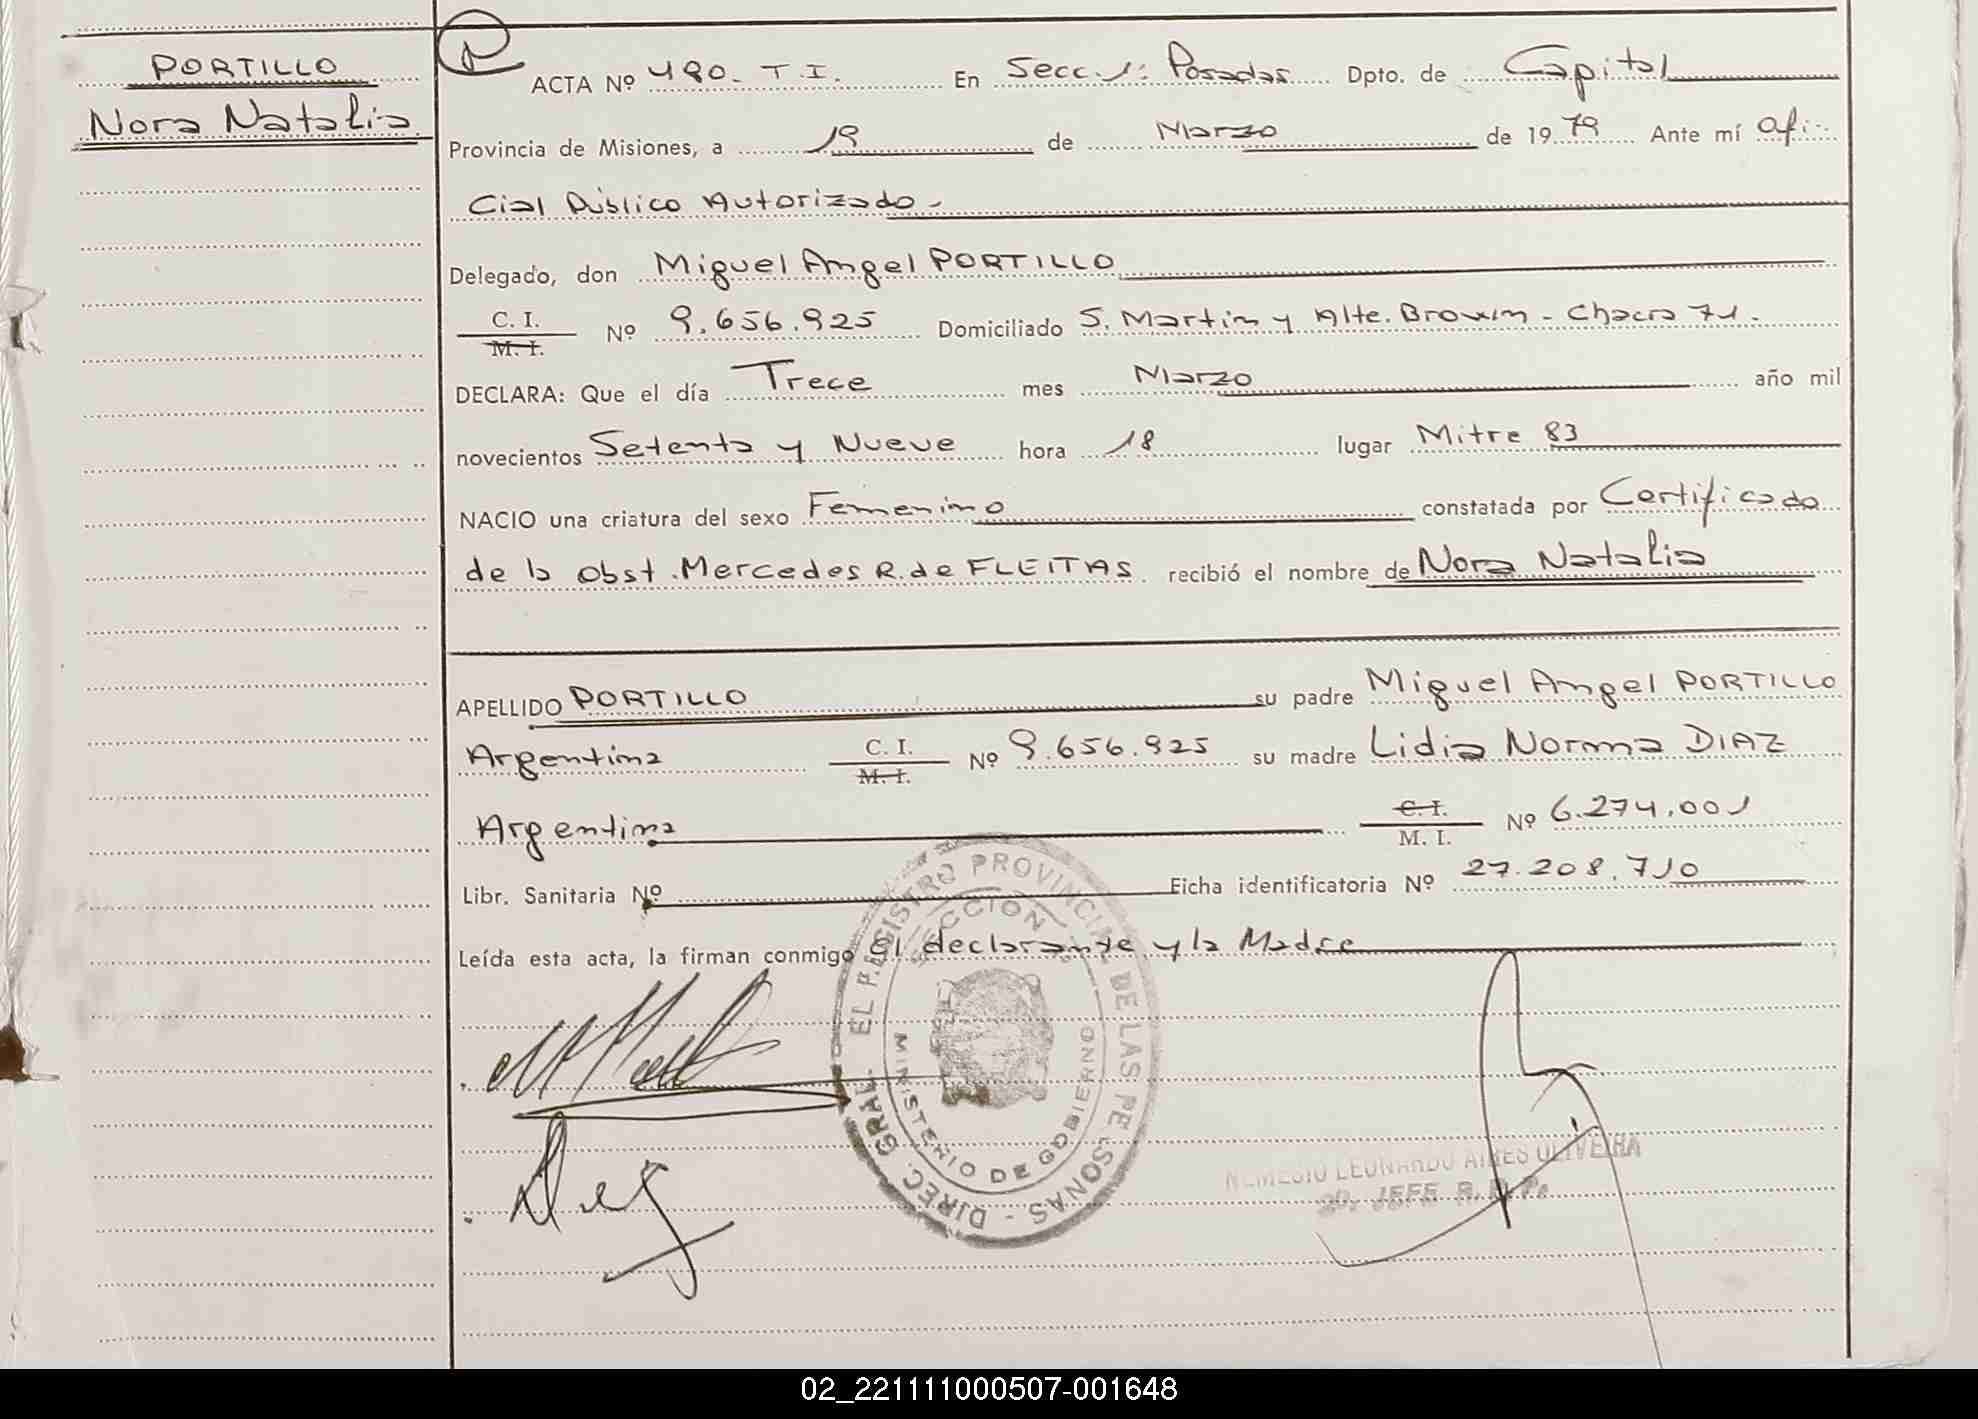 PORTILLO
Nora Natalia
ACTA Nº 480. T.I. En Secc. 1: Posadas Dpto. de Capital
Provincia de Misiones, a 19 de Marzo de 1979 Ante mí Ofi-
cial Público Autorizado -
Delegado, don Miguel Angel PORTILLO
C. I.
M. I.
Nº 9.656.925 Domiciliado S. Martin y Alte. Brown - Chacra 71.
DECLARA: Que el día Trece mes Marzo año mil
novecientos Setenta y Nueve hora 18 lugar Mitre 83
NACIO una criatura del sexo Femenino constatada por Certificado
de la Obst. Mercedes R. de FLEITAS. recibió el nombre de Nora Natalia
APELLIDO PORTILLO su padre Miguel Angel PORTILLO
Argentina C. I. M. I. Nº 9.656.925 su madre Lidia Norma DIAZ
Argentina C. I. M. I. Nº 6.274.001
Libr. Sanitaria Nº Ficha identificatoria Nº 27.208.710
Leída esta acta, la firman conmigo el declarante y la Madre
DIREC. GRAL. REGISTRO PROVINCIAL DE LAS PERSONAS -
SECCION
MINISTERIO DE GOBIERNO
NEMESIO LEONARDO AIRES OLIVEIRA
2º. JEFE R. P. P.
02_221111000507-001648